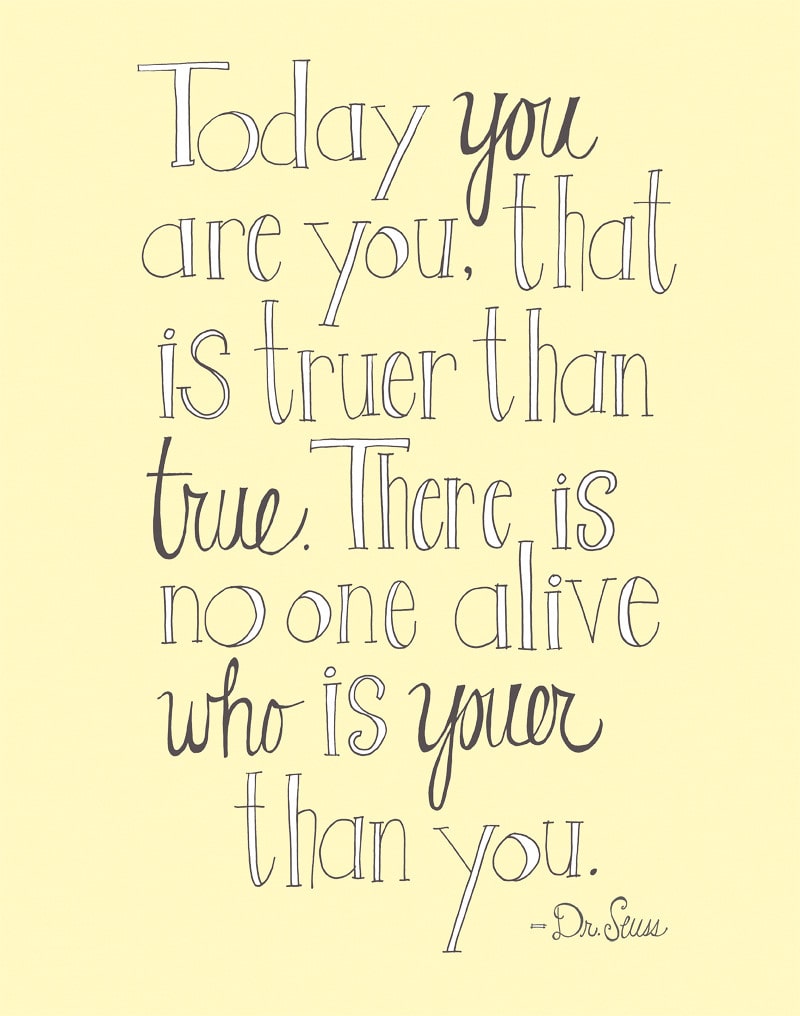 Today you
are you, that
is truer than
true. There is
no one alive
who is youer
than you.
- Dr. Seuss